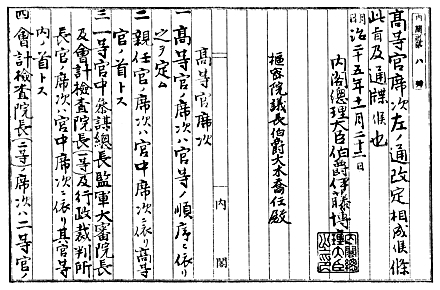 高等官席次左ノ通改定相成候條
此旨及通牒候也
明治二十五年十一月二十二日
内閣總理大臣伯爵伊藤博文
内閣總理大臣之印
樞密院議長伯爵大木喬任殿
高等官席次
一 高等官ノ席次ハ官等ノ順序ニ依リ
之ヲ定ム
二 親任官ノ席次ハ宮中席次ニ依リ高等
官ノ首トス
三 一等官中參謀總長監軍大審院長
及會計檢査院長(一等)及行政裁判所
長官ノ席次ハ宮中席次ニ依リ其官等
内ノ首トス
四 會計檢査院長(二等)ノ席次ハ二等官ノ
内閣